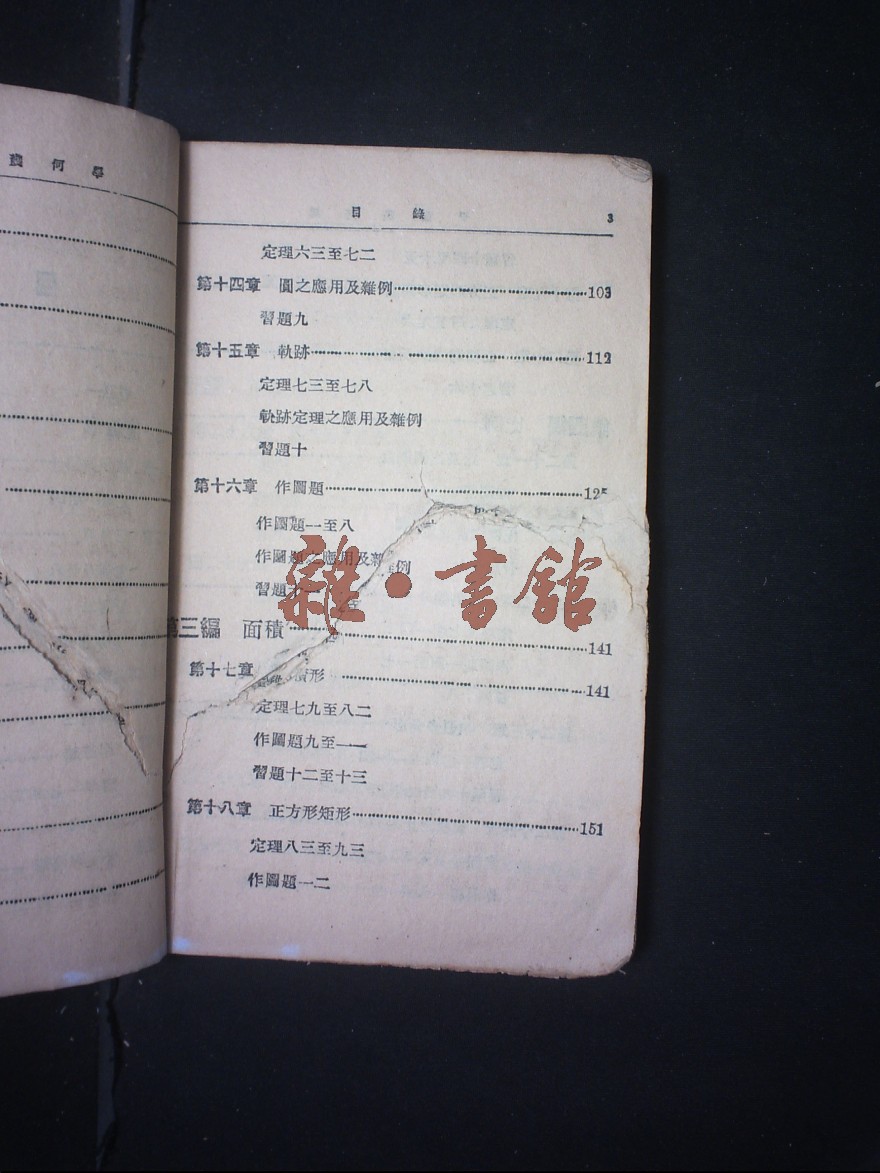 幾何學
目錄 3
定理六三至七二
第十四章 圓之應用及雜例 103
習題九
第十五章 軌跡 112
定理七三至七八
軌跡定理之應用及雜例
習題十
第十六章 作圖題 125
作圖題一至八
作圖題之應用及雜例
習題十一
雜·書館
第三編 面積 141
第十七章 積形 141
定理七九至八二
作圖題九至一一
習題十二至十三
第十八章 正方形矩形 151
定理八三至九三
作圖題一二